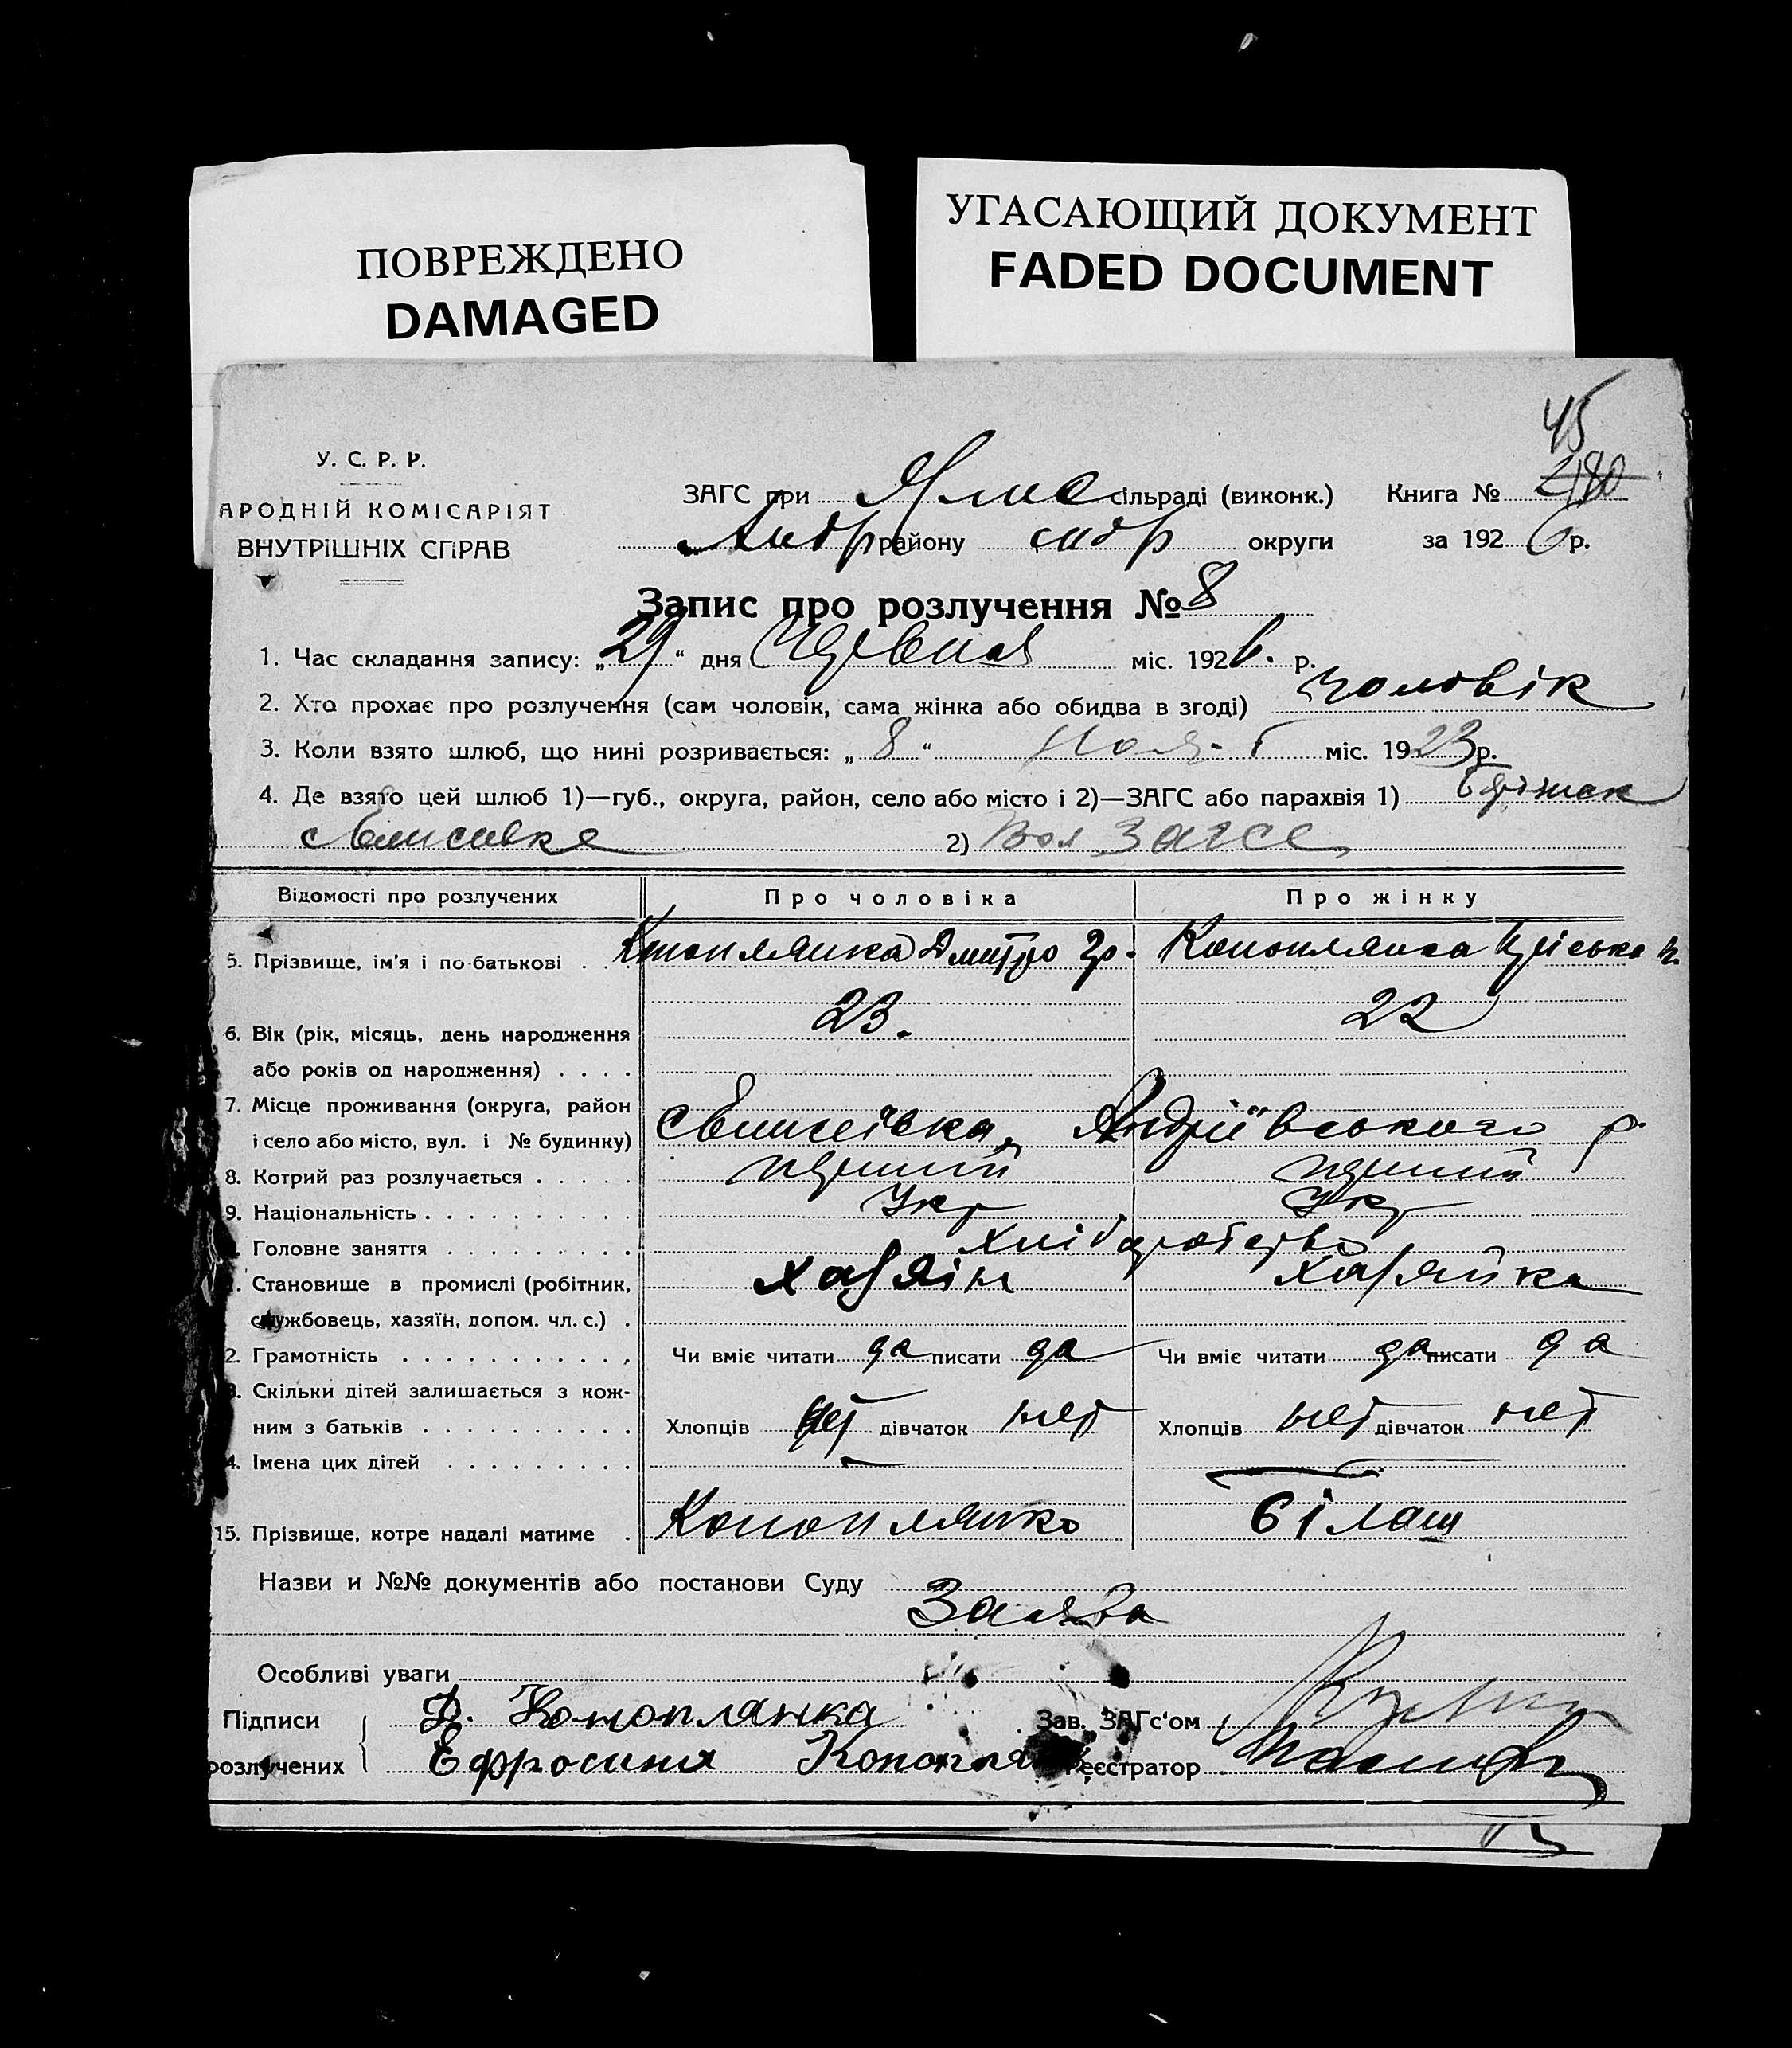 ПОВРЕЖДЕНО
DAMAGED
УГАСАЮЩИЙ ДОКУМЕНТ
FADED DOCUMENT
45
У. С. Р. Р.
АРОДНІЙ КОМІСАРІЯТ
ВНУТРІШНІХ СПРАВ
ЗАГС при сільраді (виконк.) Книга № 
Андр району округи за 1926 р.
Запис про розлучення № 8
1. Час складання запису: „29“ дня Червня міс. 1926. р.
2. Хто прохає про розлучення (сам чоловік, сама жінка або обидва в згоді) чоловік
3. Коли взято шлюб, що нині розривається: „8“ міс. 1923 р.
4. Де взято цей шлюб 1)—губ., округа, район, село або місто і 2)—ЗАГС або парахвія 1)
2) Загсе
Відомості про розлучених Про чоловіка Про жінку
5. Прізвище, ім'я і по-батькові . . Коноплянка Дмитро Гр. Коноплянка Пріська
6. Вік (рік, місяць, день народження 23. 22
або років од народження) . . . .
7. Місце проживання (округа, район
і село або місто, вул. і № будинку) Андріївського р.
8. Котрий раз розлучається . . . . . перший перший
9. Національність . . . . . . . . . . Укр Укр
Головне заняття . . . . . . . . . хліборобство
Становище в промислі (робітник, хазяїн хазяйка
службовець, хазяїн, допом. чл. с.) .
2. Грамотність . . . . . . . . . . . Чи вміє читати да писати да Чи вміє читати да писати да
3. Скільки дітей залишається з кож-
ним з батьків . . . . . . . . . . Хлопців нет дівчаток нет Хлопців нет дівчаток нет
4. Імена цих дітей . . . . . . . . .
15. Прізвище, котре надалі матиме . Коноплянко Білаш
Назви и №№ документів або постанови Суду
Заява
Особливі уваги
Підписи Д. Коноплянка Зав. ЗАГс'ом
розлучених Ефросиния Конопля Реєстратор